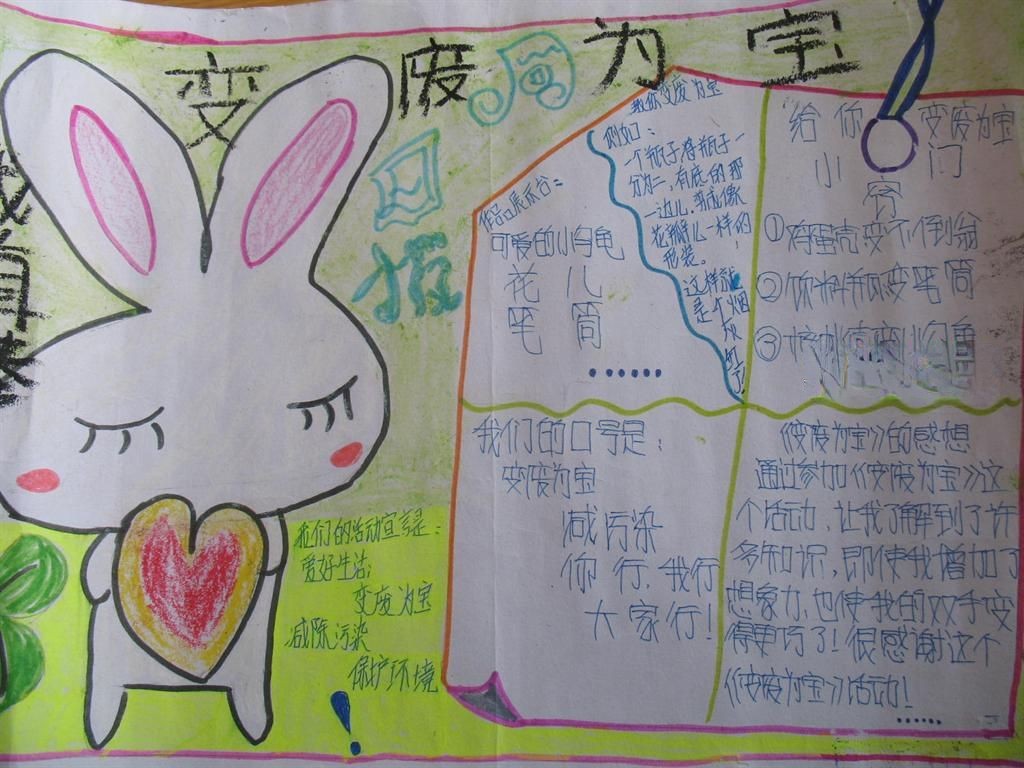 变废为宝
周
回报
作品展示台：
可爱的小白龟
花儿
笔筒
……
教你变废为宝
例如：
一个瓶子将瓶子一
分为二，有底的那
一边儿，剪成像
花瓣儿一样的
形装。
这样就
是个烟
灰缸了
给你变废为宝
小门
①鸡蛋壳变不倒翁
②饮料瓶变笔筒
我们的口号是：
变废为宝
减污染
你行，我行
大家行！
《变废为宝》的感想
通过参加《变废为宝》这
个活动，让我了解到了许
多知识，即使我增加了
想象力，也使我的双手变
得更巧了！很感谢这个
《变废为宝》活动！
……
我们的活动宣言是：
爱好生活，
变废为宝
减除污染
保护环境
！